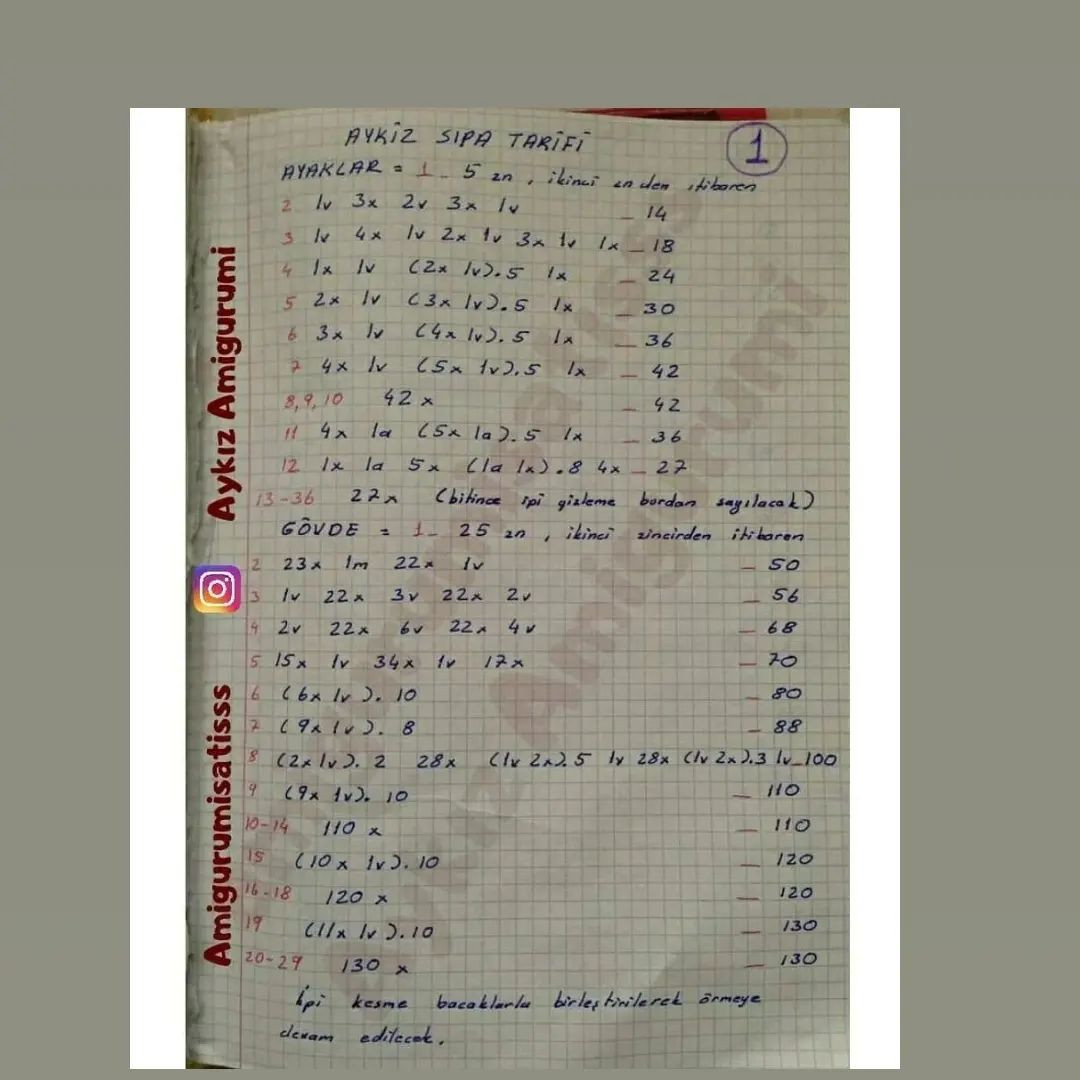 AYKİZ SIPA TARİFİ
1
AYAKLAR = 1 - 5 zn , ikinci zn den itibaren
2 1v 3x 2v 3x 1v - 14
3 1v 4x 1v 2x 1v 3x 1v 1x - 18
4 1x 1v (2x 1v).5 1x - 24
5 2x 1v (3x 1v).5 1x - 30
6 3x 1v (4x 1v).5 1x - 36
7 4x 1v (5x 1v).5 1x - 42
8,9,10 42x - 42
11 4x 1a (5x 1a).5 1x - 36
12 1x 1a 5x (1a 1x).8 4x - 27
13-36 27x (bitince ipi gizleme burdan sayılacak)
GÖVDE = 1 - 25 zn , ikinci zincirden itibaren
2 23x 1m 22x 1v - 50
3 1v 22x 3v 22x 2v - 56
4 2v 22x 6v 22x 4v - 68
5 15x 1v 34x 1v 17x - 70
6 (6x 1v). 10 - 80
7 (9x 1v). 8 - 88
8 (2x 1v). 2 28x (1v 2x).5 1v 28x (1v 2x).3 1v - 100
9 (9x 1v). 10 - 110
10-14 110 x - 110
15 (10x 1v).10 - 120
16-18 120 x - 120
19 (11x 1v).10 - 130
20-29 130 x - 130
İpi kesme bacaklarla birleştirilerek örmeye
devam edilecek.
Aykız Amigurumi
Amigurumisatisss